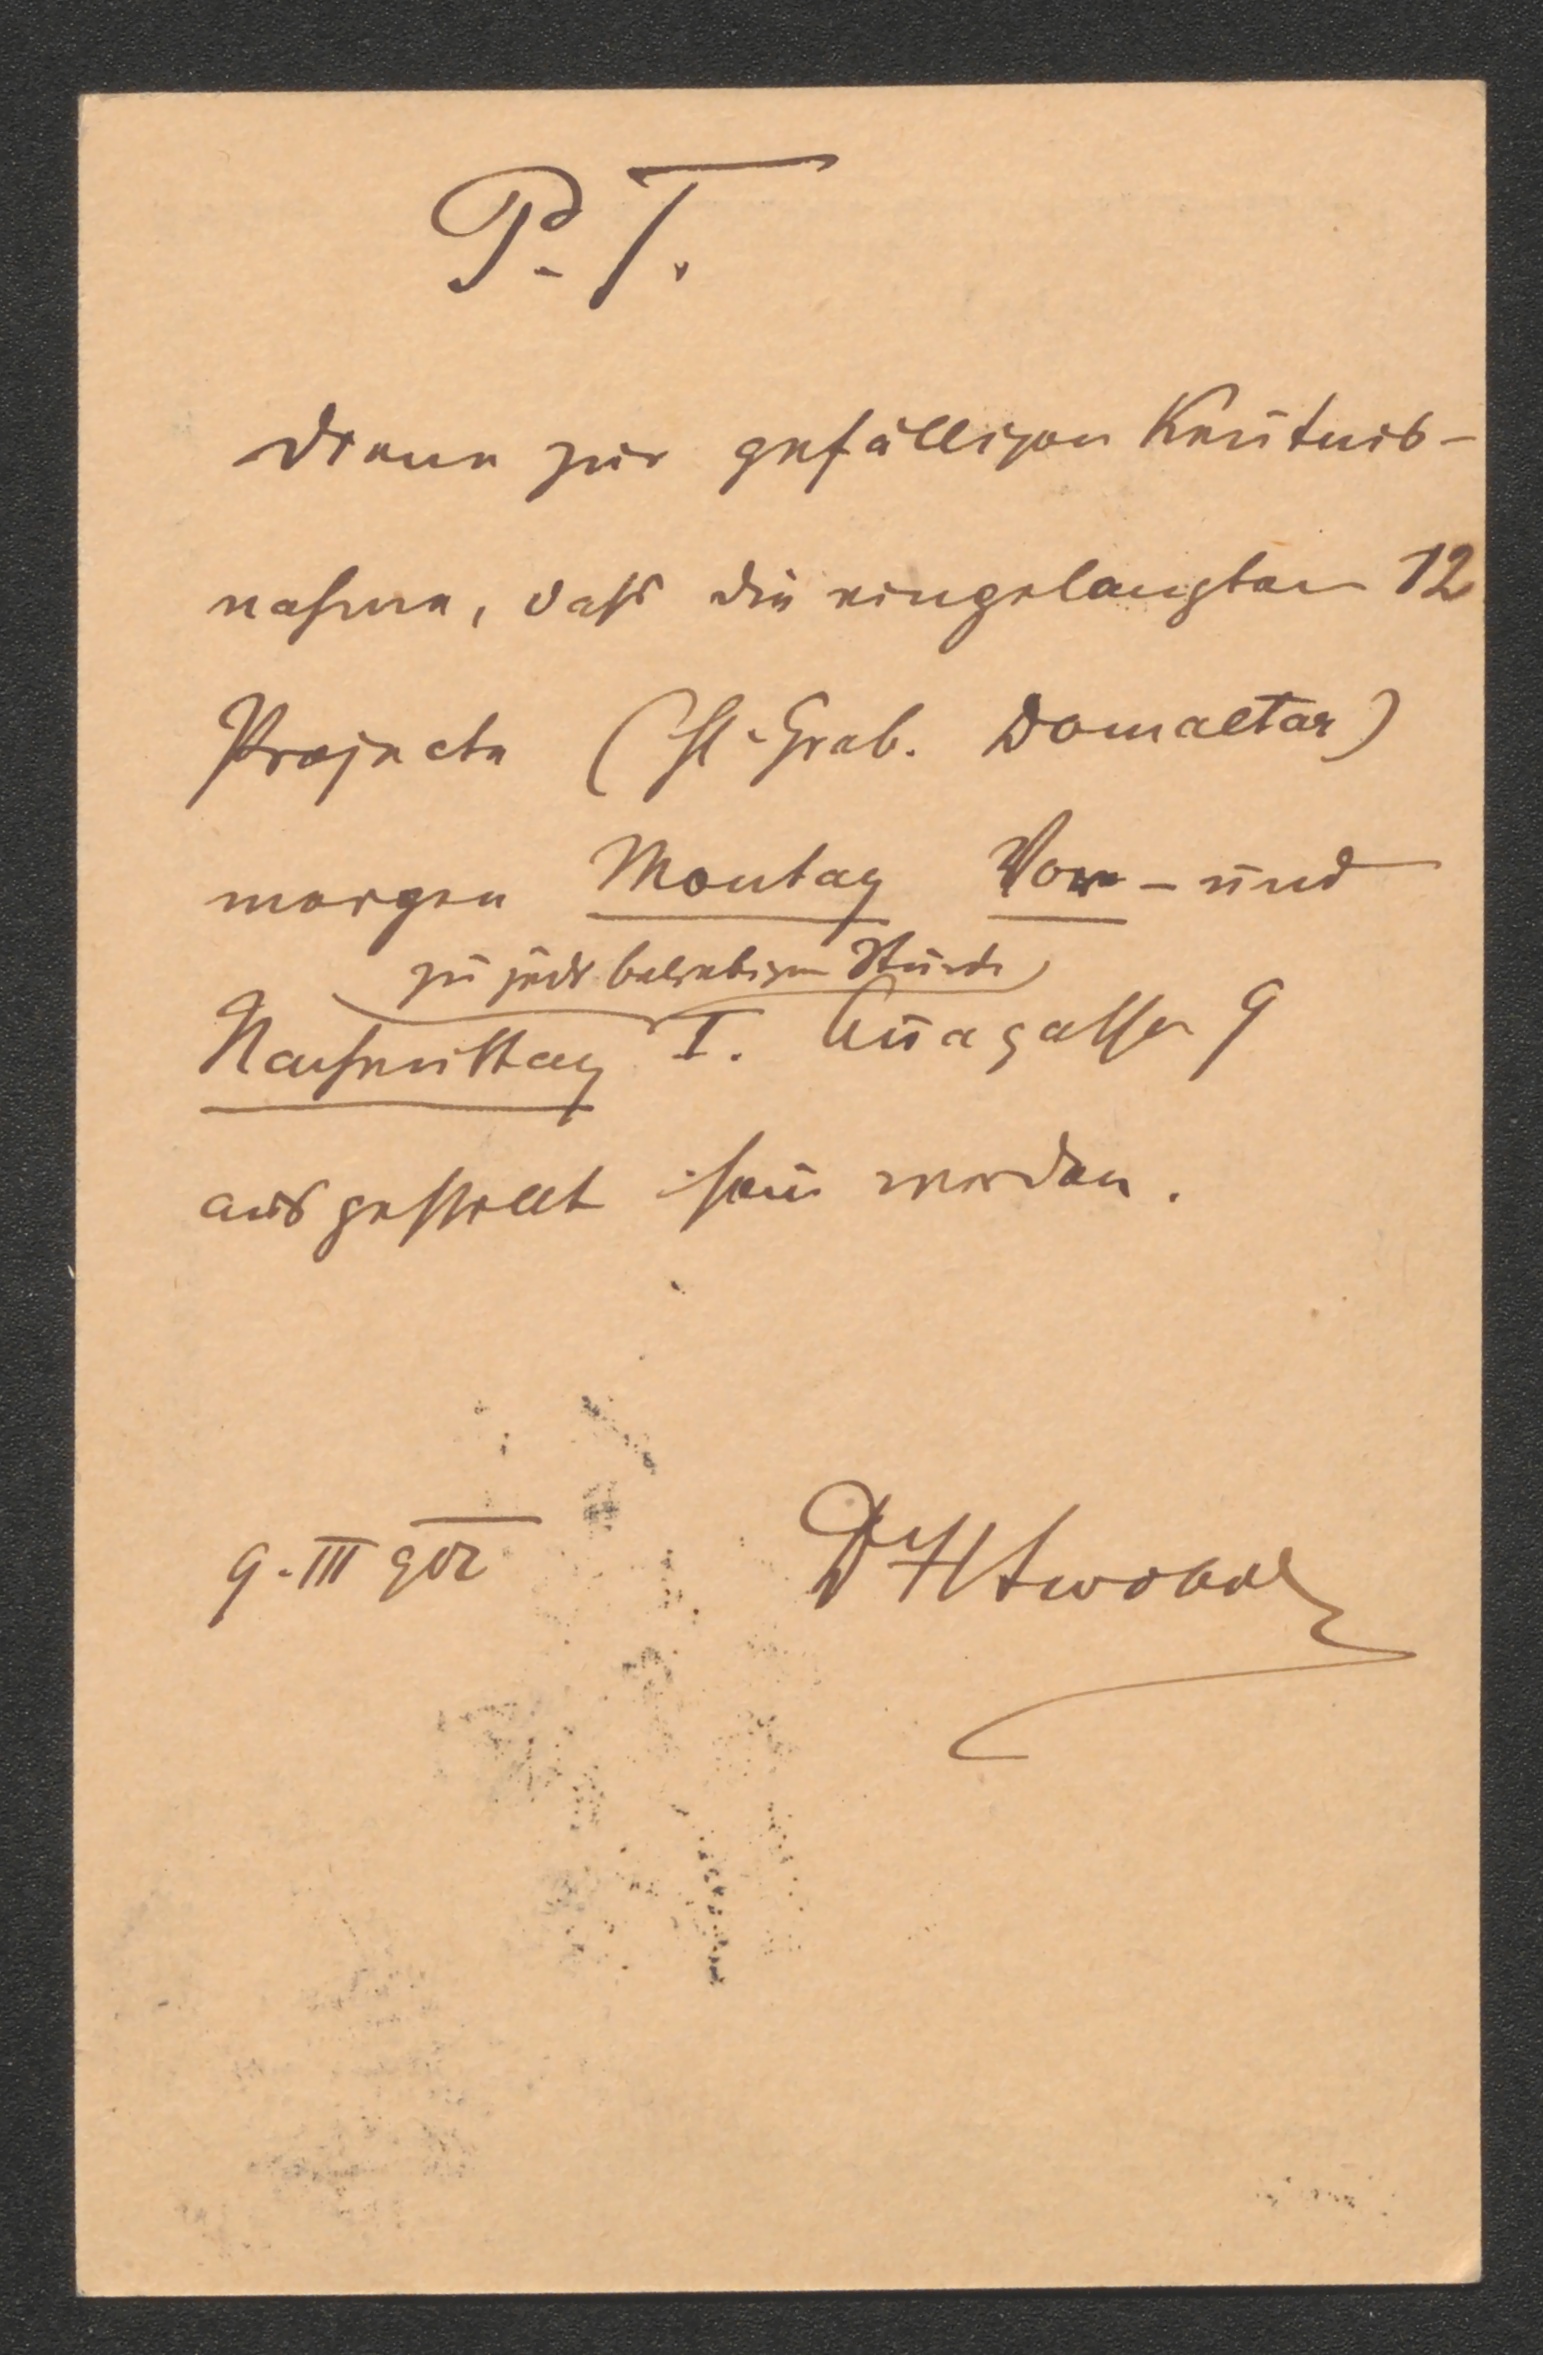 P. T.
Diene zur gefälligen Kenntnis-
nahme, daß die eingelangten 12
Projecte (Hl. Grab. Domaltar)
morgen Montag Vor- und
zu jeder beliebigen Stunde
Nachmittag I. Annagasse 9
ausgestellt sein werden.
9. III 902
Dr H Swoboda